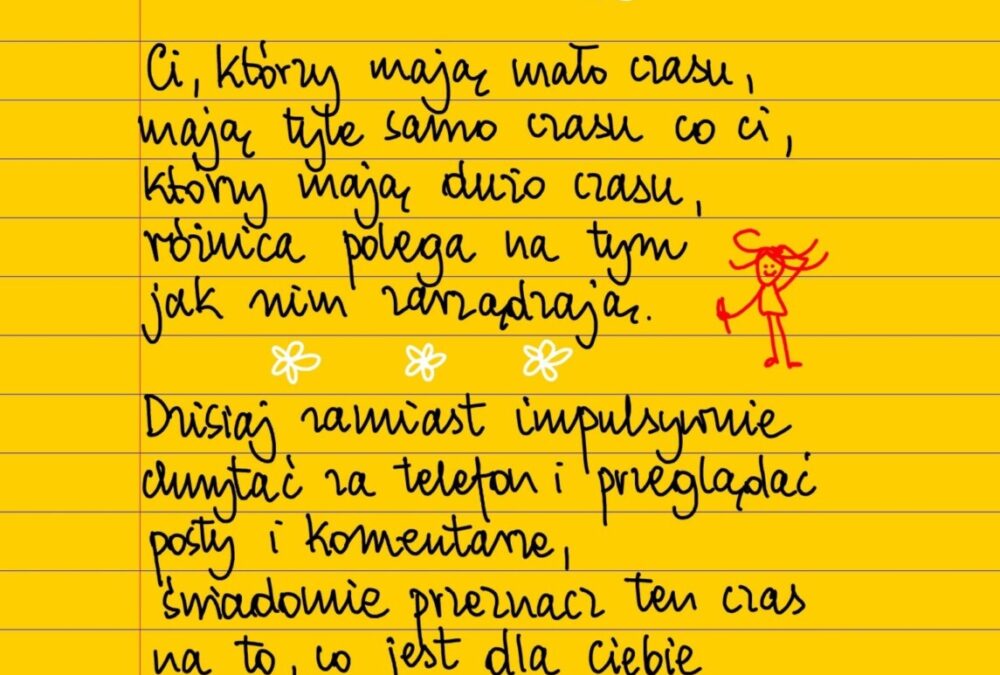 Ci, którzy mają mało czasu,
mają tyle samo czasu co ci,
którzy mają dużo czasu,
różnica polega na tym
jak nim zarządzają.
Dzisiaj zamiast impulsywnie
chwytać za telefon i przeglądać
posty i komentarze,
świadomie przeznacz ten czas
na to, co jest dla ciebie